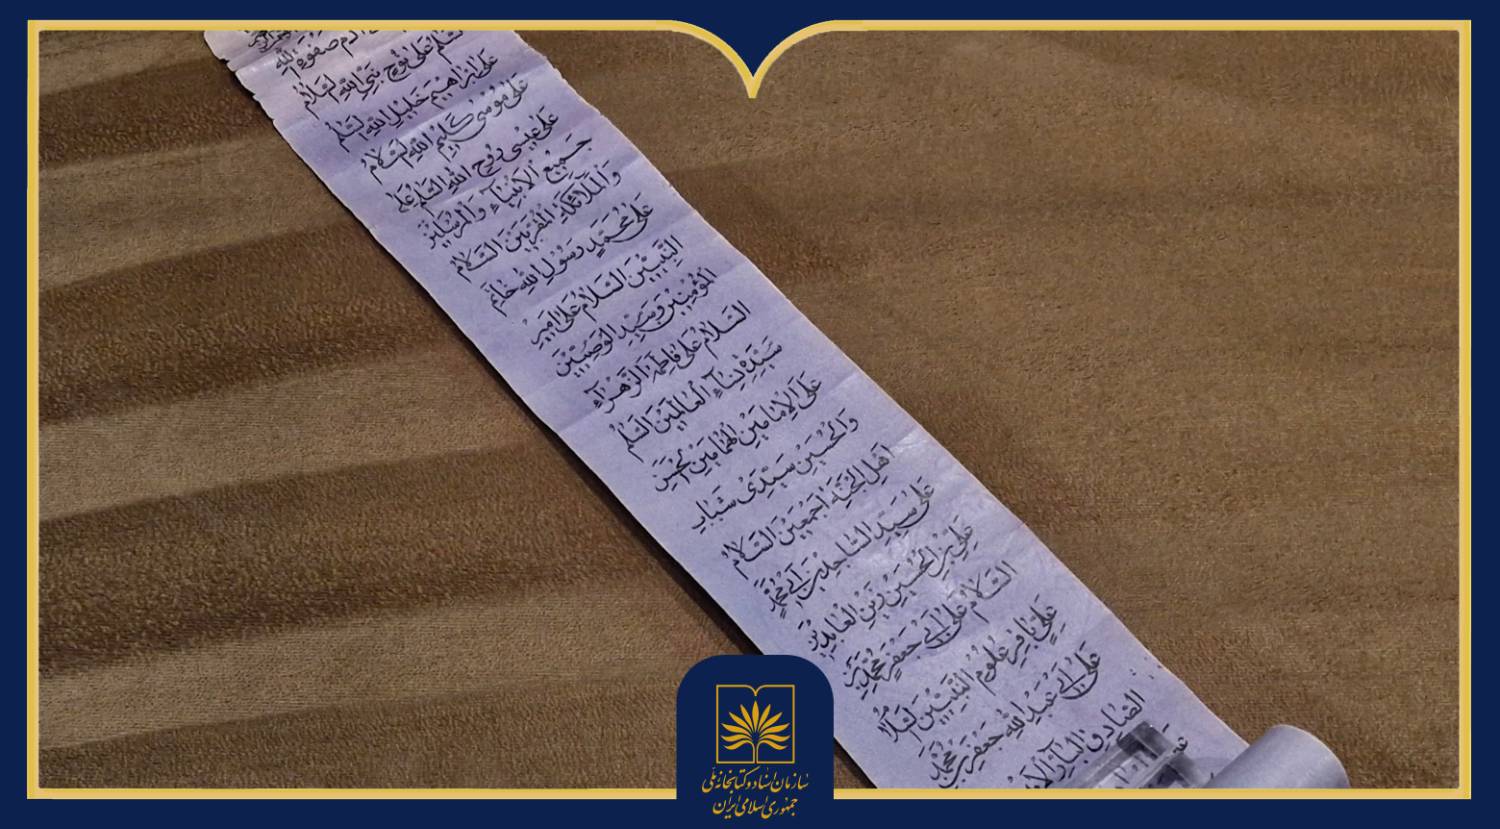 آدم صفوة الله
السلم على نوح نبي الله السلام
على ابراهيم خليل الله السلم
على موسى كليم الله السلام
على عيسى روح الله السلم على
جميع الانبياء والمرسلين
والملائكة المقربين السلام
على محمد رسول الله خاتم
النبيين السلام على امير
المؤمنين وسيد الوصيين
السلام على فاطمة الزهراء
سيدة نساء العالمين السلم
على الامامين الهمامين الحسن
والحسين سيدى شباب
اهل الجنة اجمعين السلام
على سيد الساجدين ابي محمد
على بن الحسين زين العابدين
السلام على ابي جعفر محمد بن
على باقر علوم النبيين السلام
على ابي عبد الله جعفر بن محمد
الصادق البار الا
سازمان اسناد و کتابخانه ملی
جمهوری اسلامی ایران